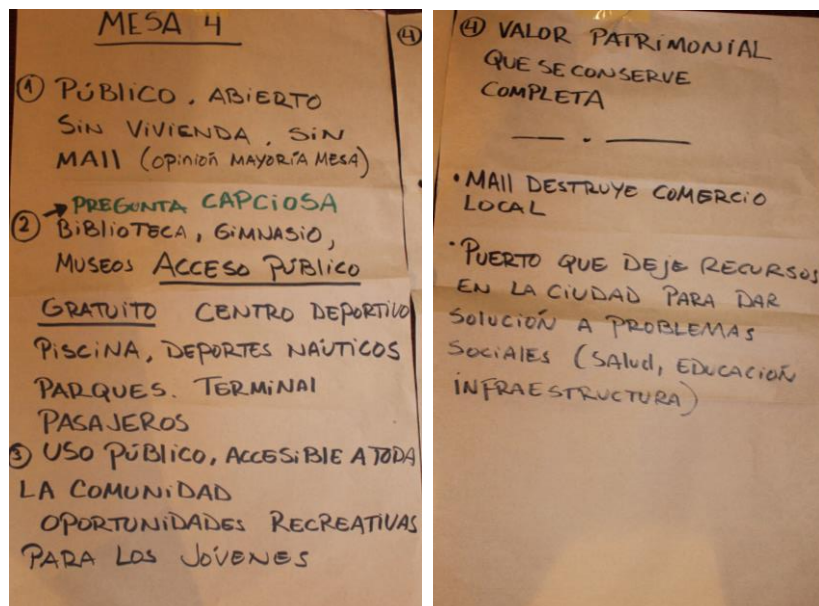 MESA 4
① PÚBLICO, ABIERTO
SIN VIVIENDA, SIN
MALL (OPINIÓN MAYORÍA MESA)
→ PREGUNTA CAPCIOSA
② BIBLIOTECA, GIMNASIO,
MUSEOS ACCESO PÚBLICO
GRATUITO CENTRO DEPORTIVO
PISCINA, DEPORTES NAÚTICOS
PARQUES. TERMINAL
PASAJEROS
③ USO PÚBLICO, ACCESIBLE A TODA
LA COMUNIDAD
OPORTUNIDADES RECREATIVAS
PARA LOS JÓVENES
④
④ VALOR PATRIMONIAL
QUE SE CONSERVE
COMPLETA
— . —
• MALL DESTRUYE COMERCIO
LOCAL
• PUERTO QUE DEJE RECURSOS
EN LA CIUDAD PARA DAR
SOLUCIÓN A PROBLEMAS
SOCIALES (SALUD, EDUCACIÓN
INFRAESTRUCTURA)